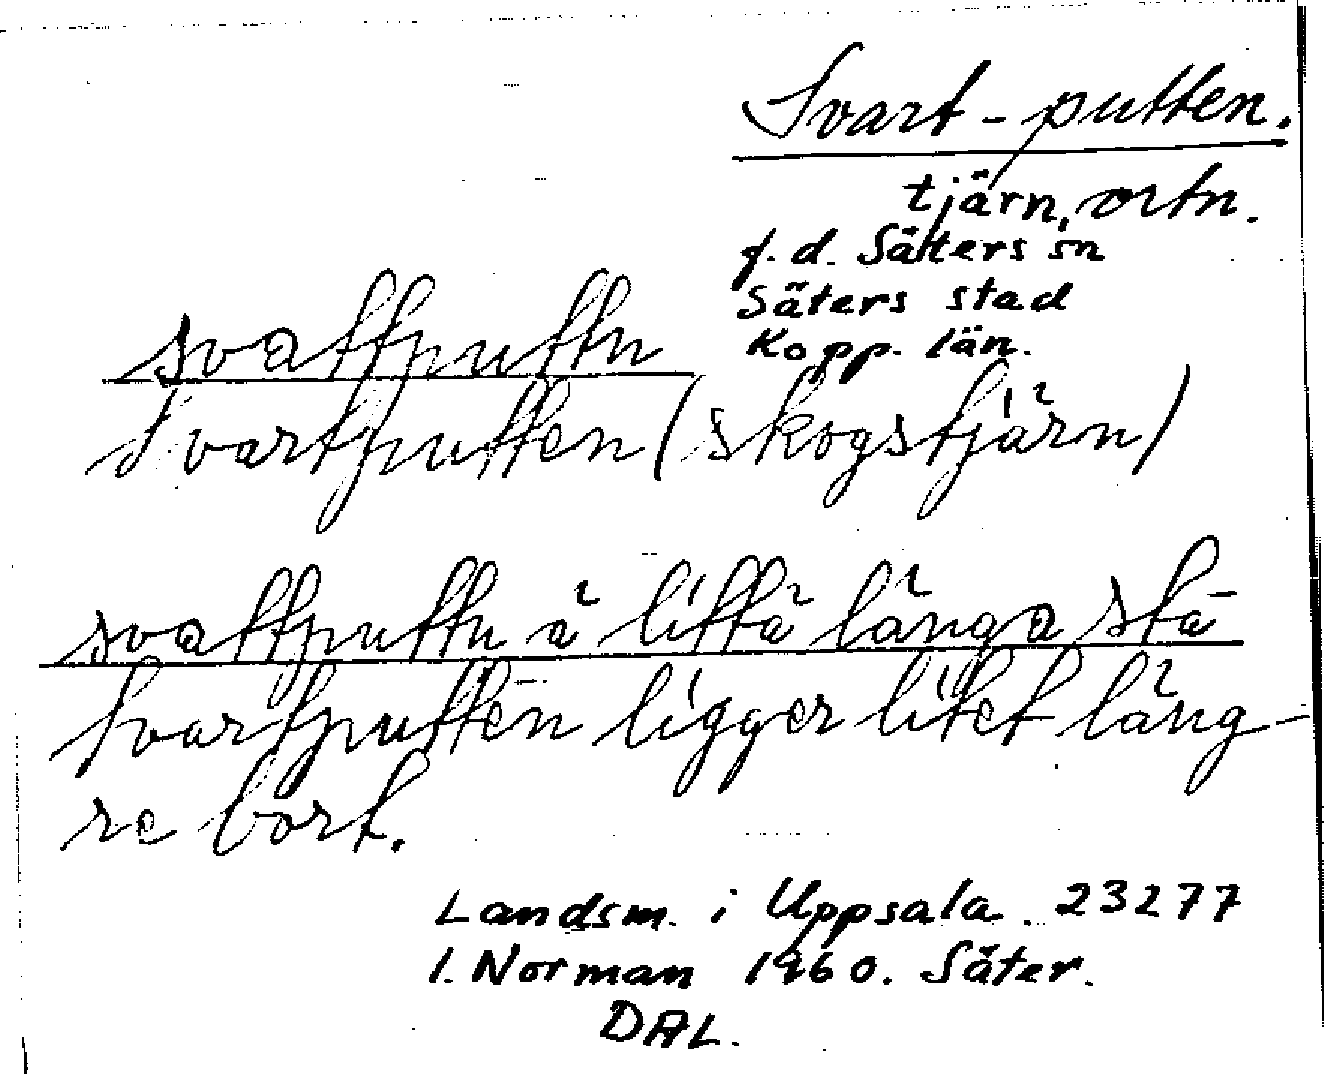 Svart-putten.
tjärn, ortn.
f. d. Säters sn
Säters stad
Kopp. län.
svattputtn
Svartputten (skogstjärn)
svattputtn ä littä länga stä
Svartputten ligger litet läng-
re bort.
Landsm. i Uppsala. 23277
I. Norman 1960. Säter.
DAL.